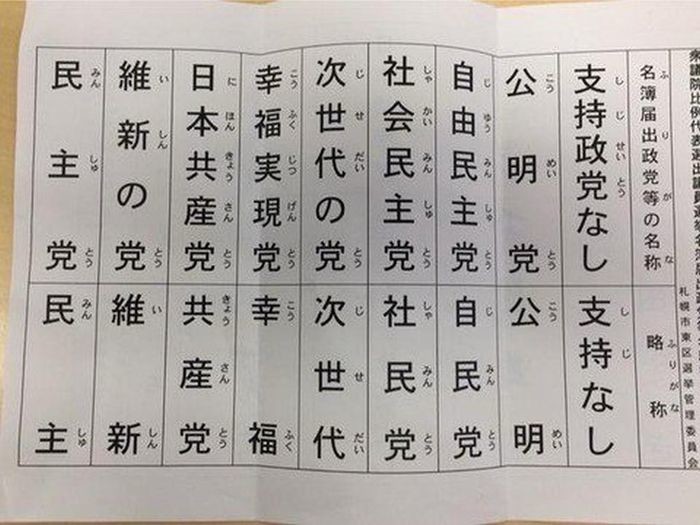 衆議院比例代表選出議員選挙名簿届出政党
札幌市東区選挙管理委員会
名簿届出政党等の名称
ふりがな
略称
ふりがな
支持政党なし
しじせいとう
支持なし
しじ
公明党
こうめいとう
公明
こうめい
自由民主党
じゆうみんしゅとう
自民党
じみんとう
社会民主党
しゃかいみんしゅとう
社民党
しゃみんとう
次世代の党
じせだいとう
次世代
じせだい
幸福実現党
こうふくじつげんとう
幸福
こうふく
日本共産党
にほんきょうさんとう
共産党
きょうさんとう
維新の党
いしんとう
維新
いしん
民主党
みんしゅとう
民主
みんしゅ